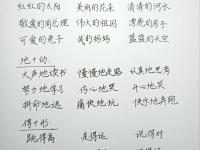 红红的太阳 美丽的花朵 清清的河水
敬爱的周总理 伟大的祖国 漂亮的房子
可爱的兔子 我的妈妈 蓝蓝的天空
地+动:
大声地读书 慢慢地走路 认真地思考
努力地学习 伤心地哭 开心地笑
拼命地逃 痛快地玩 快乐地奔跑
得+形:
跳得高 是得远 说得对